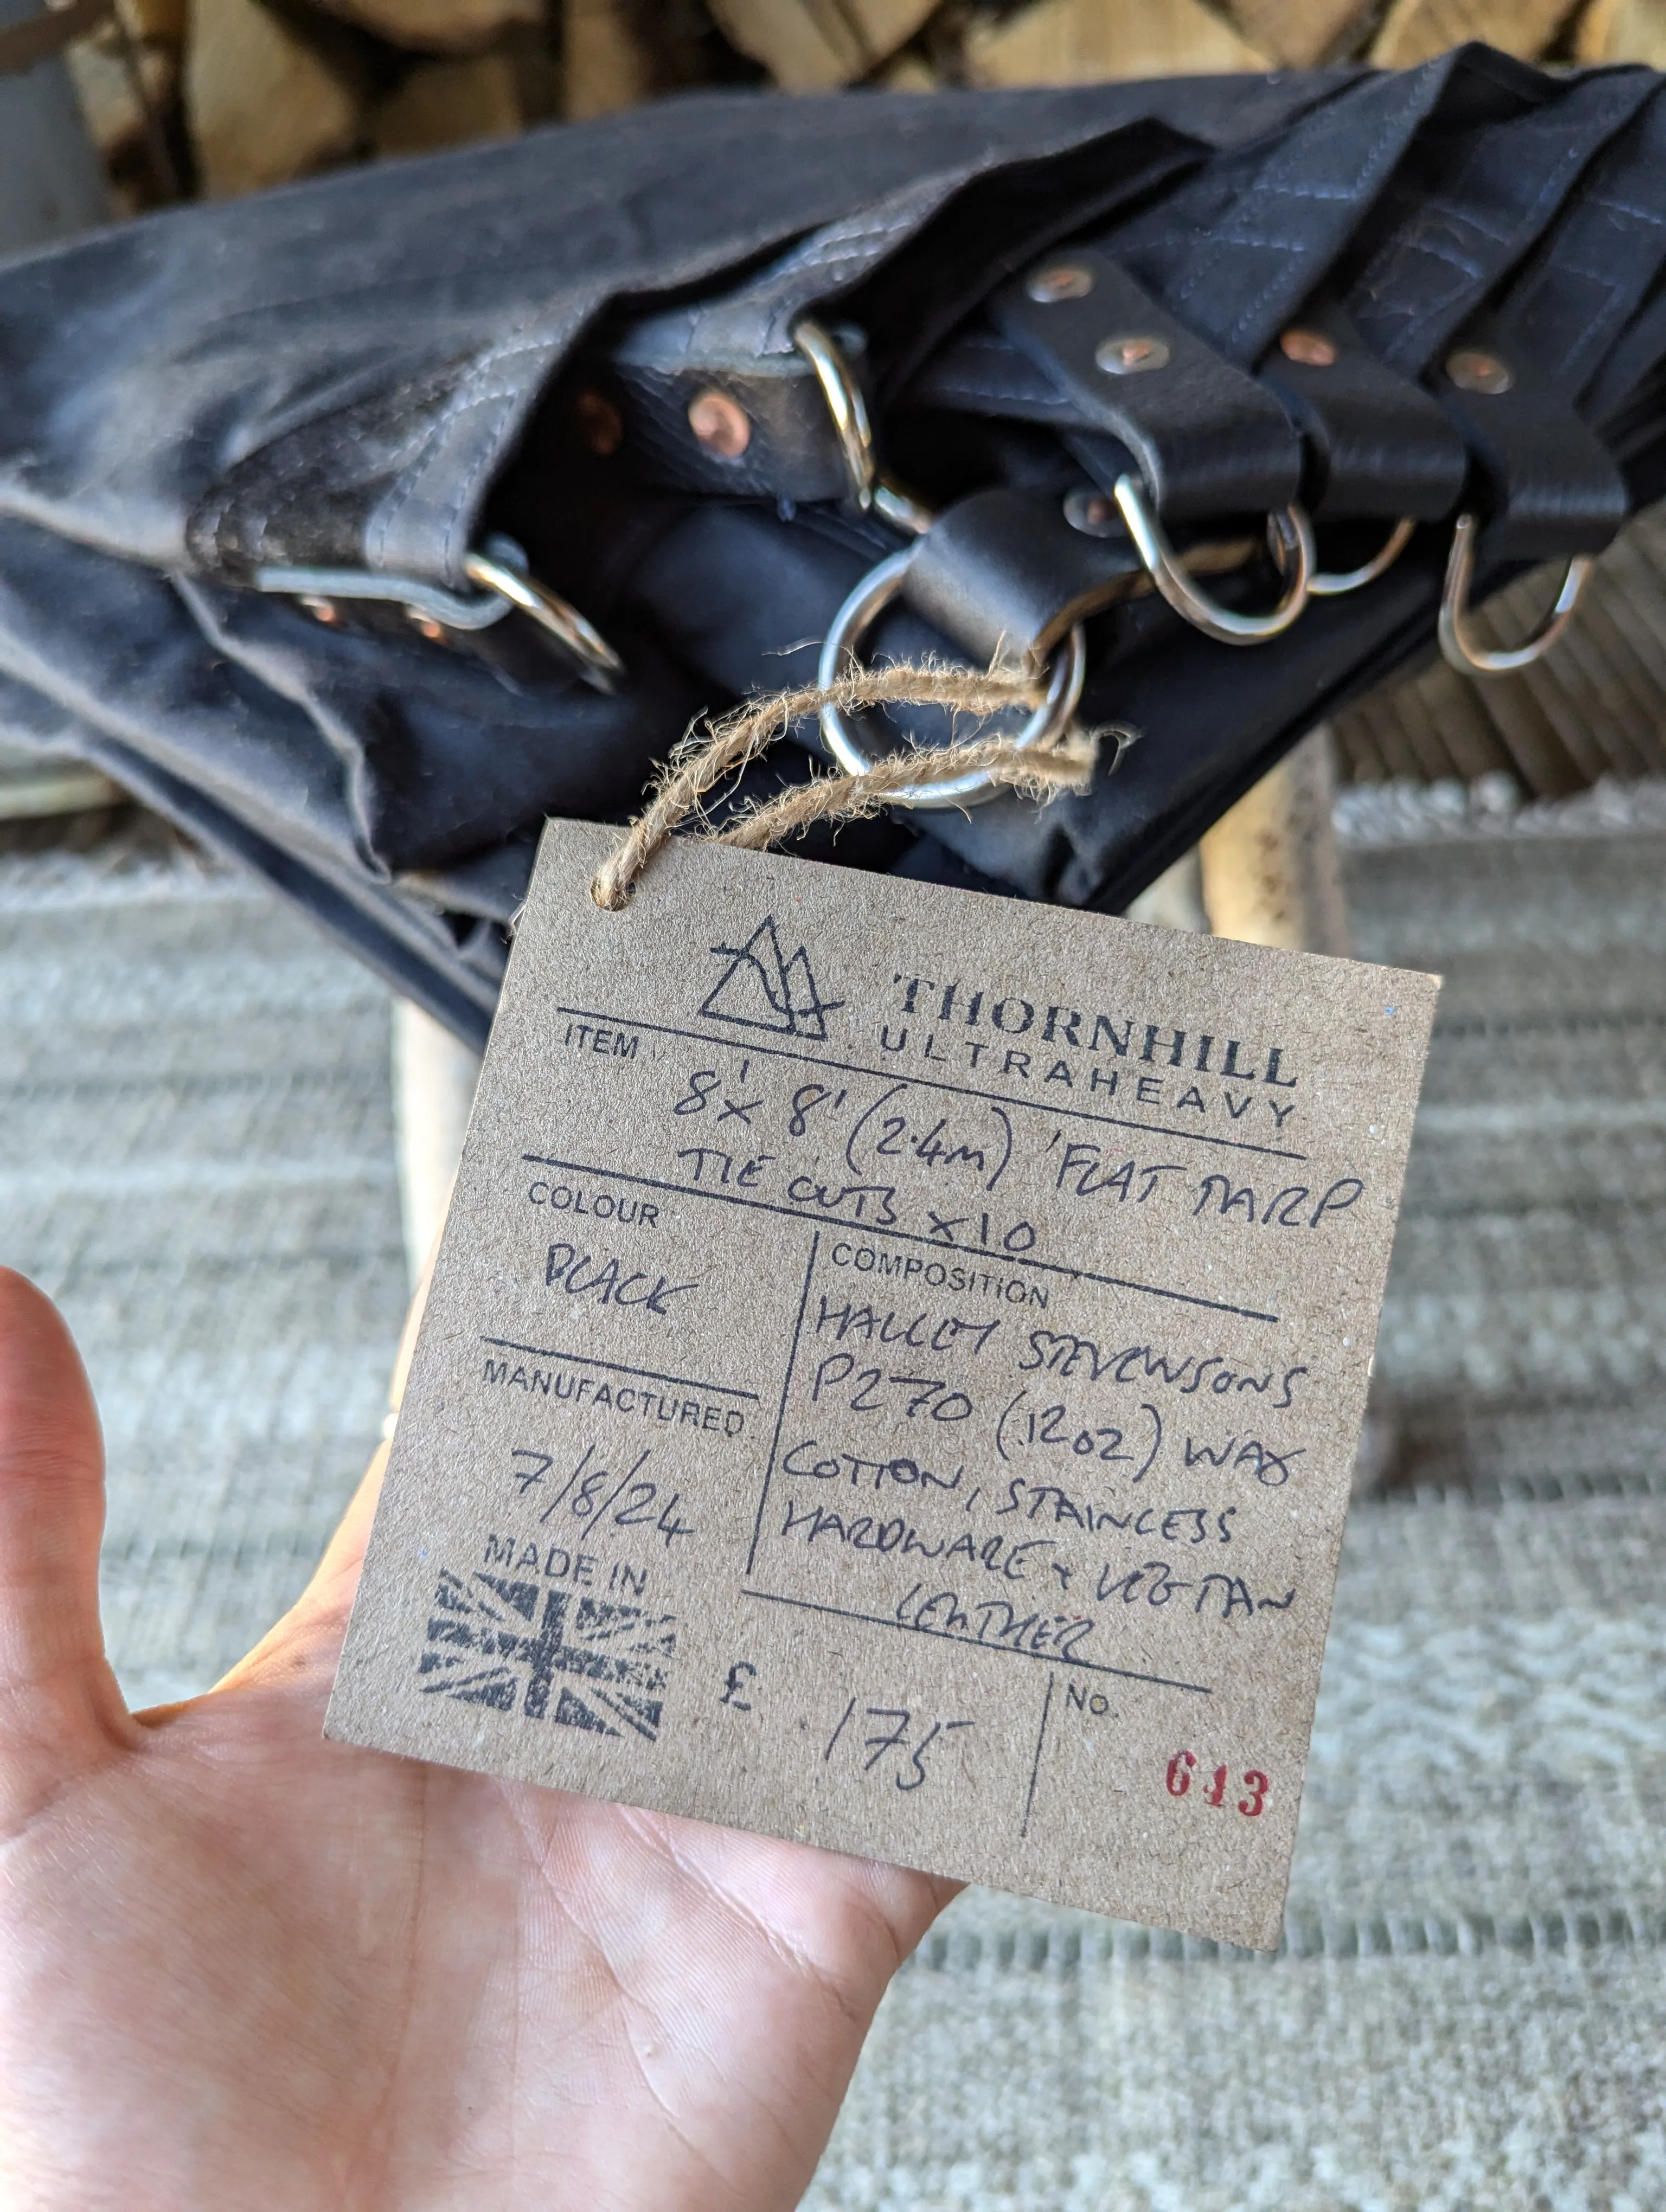 THORNHILL
ULTRAHEAVY
ITEM
8' x 8' (2.4m) 'FLAT TARP
TIE OUTS x10
COLOUR
BLACK
COMPOSITION
HALLEY STEVENSONS
P270 (12oz) WAX
COTTON, STAINLESS
HARDWARE + VEG TAN
LEATHER
MANUFACTURED
7/8/24
MADE IN
£ 175
NO.
613